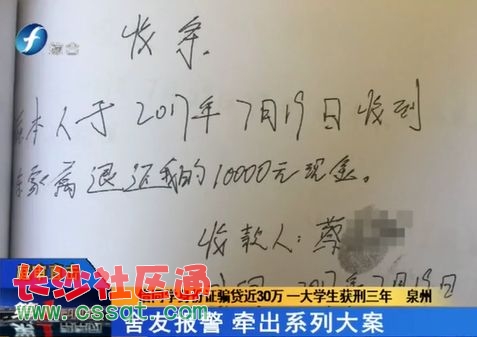 综合
收条
本人于2017年7月19日收到
家属退还我的10000元现金。
收款人:蔡
2017年7月19日
长沙社区通
www.cssqt.com
借同学身份证骗贷近30万 一大学生获刑三年 泉州
舍友报警 牵出系列大案